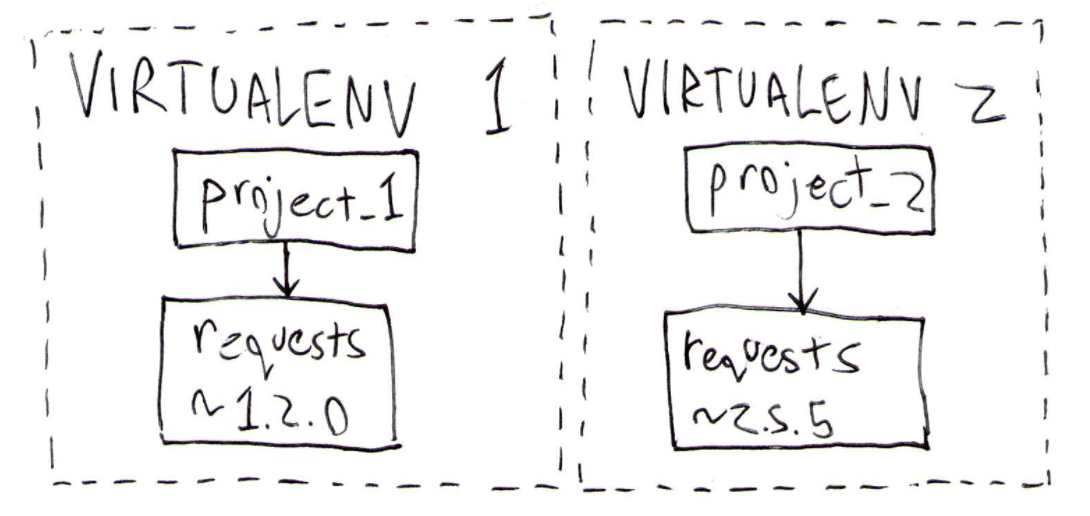 VIRTUALENV 1
project_1
requests
~1.2.0
VIRTUALENV 2
project_2
requests
~2.5.5